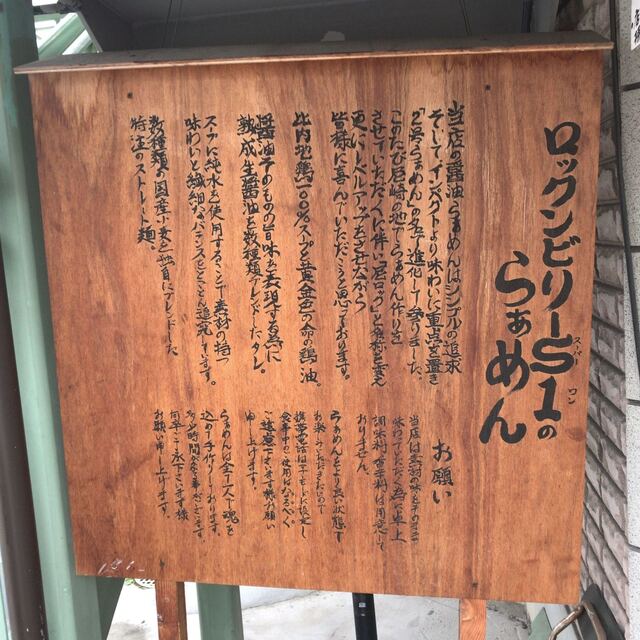 ロックンビリーS1の
スーパーワン
らぁめん
当店の醤油らぁめんはシンプルの追求
そしてインパクトより味わいに重点を置き
このたび尼崎の地でらぁめん作りを
させていただくに伴い「尼ロック」と名称を変え
更にレベルアップをさせながら
皆様に喜んでいただこうと思っております。
比内地鶏100%スープと黄金色の命の鶏油。
醤油そのものの旨味を表現する為に
熟成生醤油を数種類ブレンドしたタレ。
スープに純水を使用することで素材の持つ
味わいと繊細なバランスをとことん追究しています。
数種類の国産小麦を独自にブレンドした
特注のストレート麺。
お願い
当店は素材の味をそのまま
味わっていただく為に卓上
調味料、香辛料は用意して
おりません。
らぁめんをより良い状態で
お楽しみいただきたいので
携帯電話はマナーモードに設定し
食事中のご使用はなるべく
ご遠慮下さいます様お願い
申し上げます。
らぁめんは全て一人で魂を
込めて手作りしております。
多少お時間を頂く事がございます。
何卒ご了承下さいます様
お願い申し上げます。